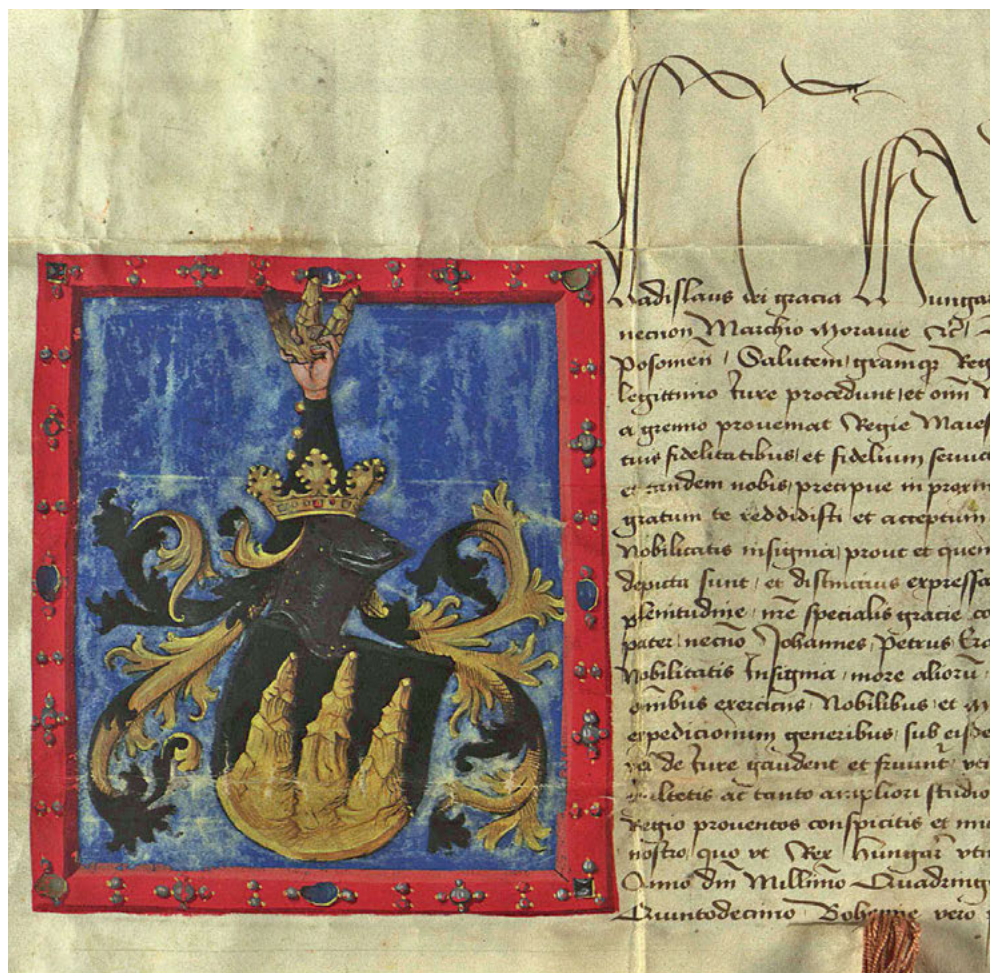 Wladislaus dei gracia Hungar
necnon Marchio Moravie
Posonien Salutem gramqȝ Reg
legittimo Iure procedunt et omn
a gremio proveniat Regie Maies
tuis fidelitatibus et fidelium servic
et tandem nobis precipue in proxim
gratum te reddidisti et acceptum
Nobilitatis insignia prout et quem
depicta sunt et distinctius expressa
plenitudine nre specialis gracie co
pater necno Johannes Petrus Era
Nobilitatis Insignia more alioru
omnibus exercitus Nobilibus et
expedicionum generibus sub
de Iure gaudent et fruunt
ac tanto ampliori studio
Regio proventos conspicitis et
nostro quo ut Rex Hungar
Anno dm Millimo Quadringe
Quintodecimo Bohemie vero